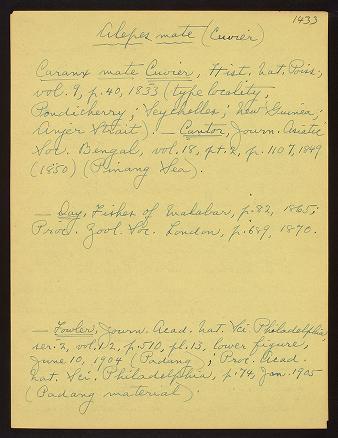 1433
Alepes mate (Cuvier)
Caranx mate Cuvier, Hist. Nat. Poiss.,
vol. 9, p. 40, 1833 (type locality,
Pondicherry; Seychelles; New Guinea;
Anjer Strait). — Cantor, Journ. Asiatic
Soc. Bengal, vol. 18, pt. 2, p. 1107, 1849
(1850) (Pinang Sea).
— Day, Fishes of Malabar, p. 82, 1865;
Proc. Zool. Soc. London, p. 689, 1870.
— Fowler, Journ. Acad. Nat. Sci. Philadelphia,
ser. 2, vol. 12, p. 510, pl. 13, lower figure,
June 10, 1904 (Padang); Proc. Acad.
Nat. Sci. Philadelphia, p. 74, Jan. 1905
(Padang material)